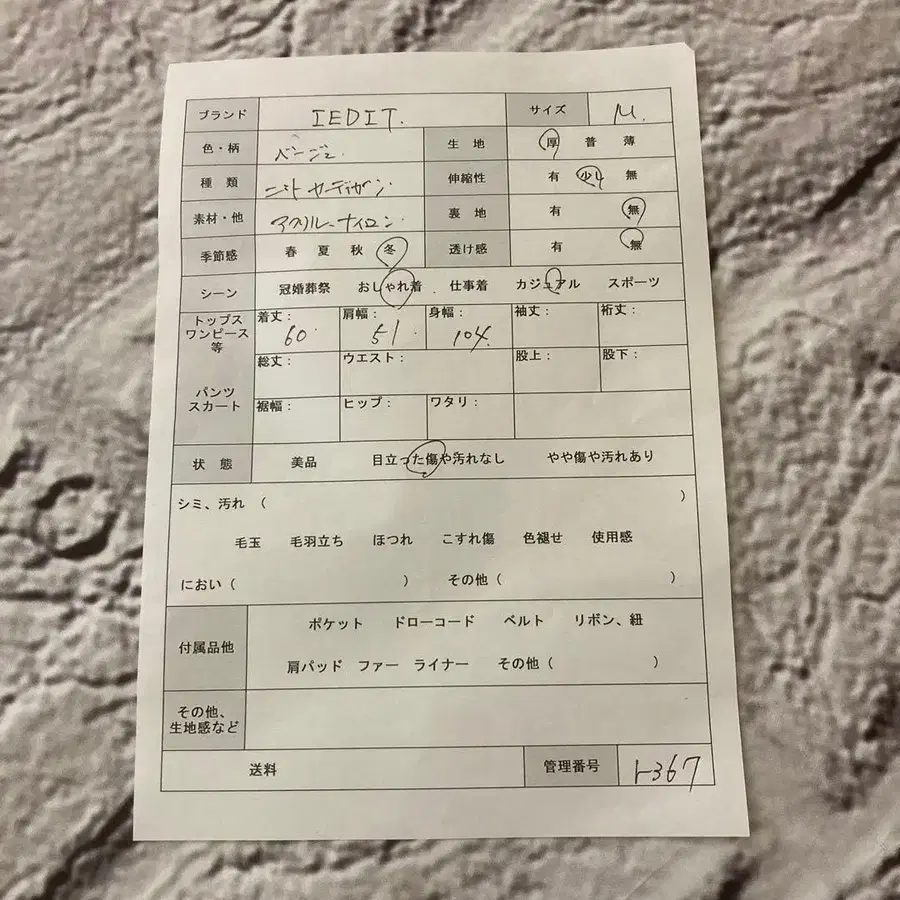 ブランド IEDIT. サイズ M.
色・柄 ベージュ. 生地 厚 普 薄
種類 ニットカーディガン. 伸縮性 有 少し 無
素材・他 アクリル、ナイロン. 裏地 有 無
季節感 春 夏 秋 冬 透け感 有 無
シーン 冠婚葬祭 おしゃれ着 仕事着 カジュアル スポーツ
トップス ワンピース 等 着丈: 60 肩幅: 51 身幅: 104. 袖丈: 裄丈:
総丈: ウエスト: 股上: 股下:
パンツ スカート 裾幅: ヒップ: ワタリ:
状態 美品 目立った傷や汚れなし やや傷や汚れあり
シミ、汚れ ( )
毛玉 毛羽立ち ほつれ こすれ傷 色褪せ 使用感
におい ( ) その他 ( )
付属品他 ポケット ドローコード ベルト リボン、紐
肩パッド ファー ライナー その他 ( )
その他、
生地感など
送料 管理番号 ト367